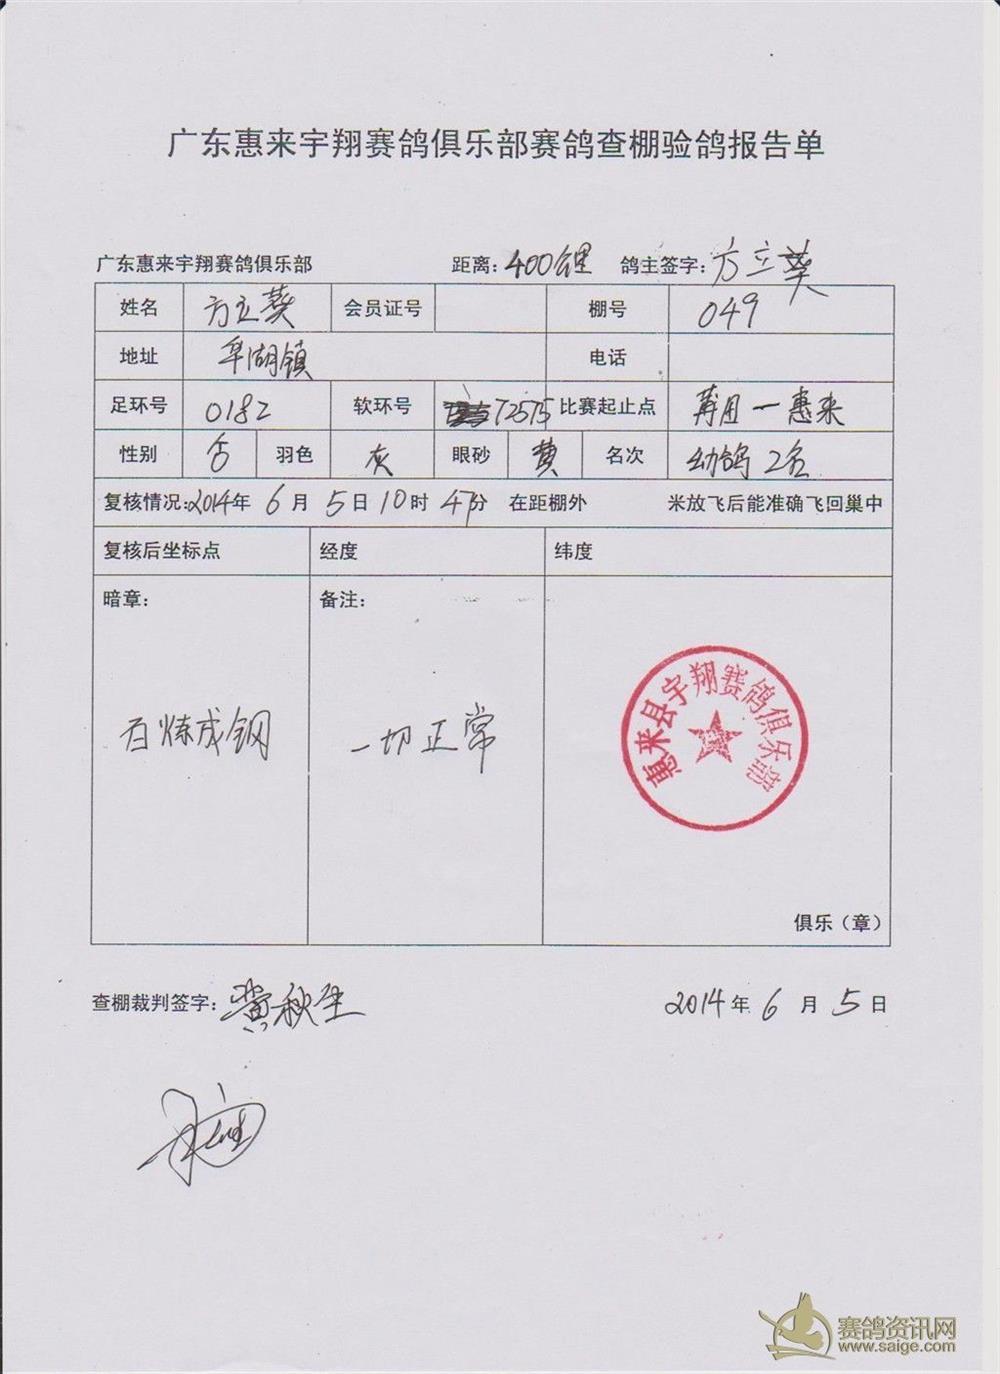 广东惠来宇翔赛鸽俱乐部赛鸽查棚验鸽报告单
广东惠来宇翔赛鸽俱乐部 距离: 400公里 鸽主签字: 方立葵
姓名 方立葵 会员证号 棚号 049
地址 湖镇 电话
足环号 0182 软环号 72575 比赛起止点 — 惠来
性别 羽色 灰 眼砂 黄 名次 幼鸽 2名
复核情况:2014年 6 月 5 日 10 时 47 分 在距棚外 米放飞后能准确飞回巢中
复核后坐标点 经度 纬度
暗章: 备注:
百炼成钢 一切正常
惠来县宇翔赛鸽俱乐部
俱乐（章）
查棚裁判签字: 黄秋生 2014 年 6 月 5 日
赛鸽资讯网
www.saige.com